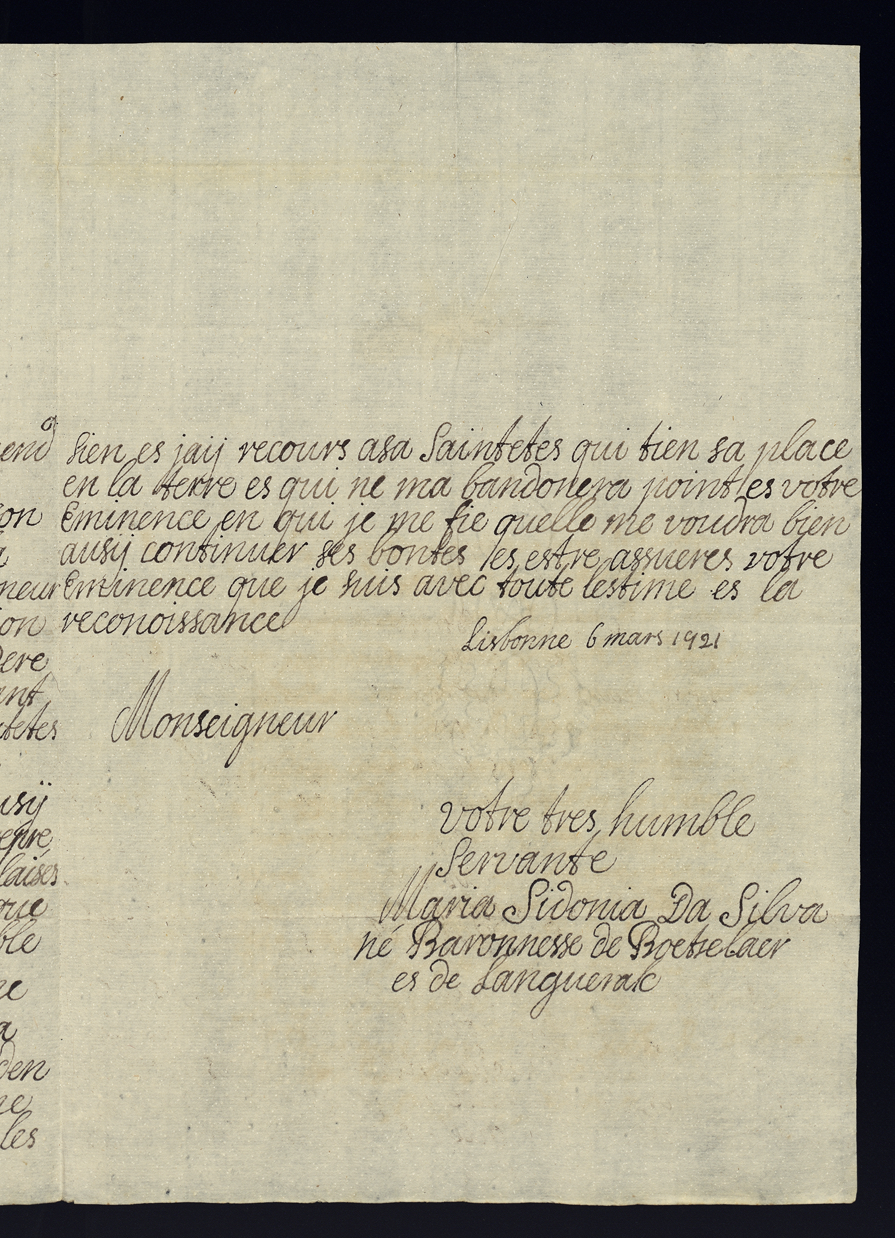 end
on
a
neur
on
dere
ant
tetes
usij
repre
laises
que
ble
ne
a
den
ne
les
sien es jaij recours asa Saintetes qui tien sa place
en la terre es qui ne ma bandonera point es votre
Eminence en qui je me fie quelle me voudra bien
ausij continuer ses bontes es estre assueres votre
Eminence que je suis avec toute lestime es la
reconoissance
Lisbonne 6 mars 1721
Monseigneur
votre tres humble
Servante
Maria Sidonia Da Silva
né Baronnesse de Boetselaer
es de Languerak